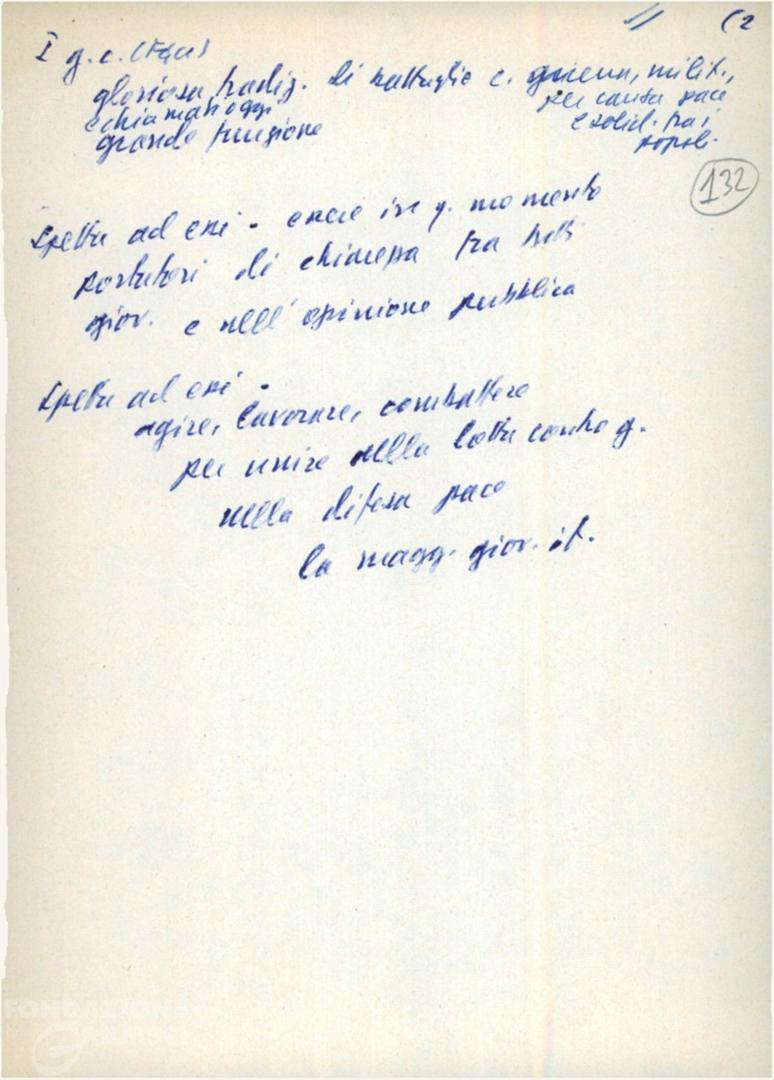 11 (2
I g. c. (FGCI)
gloriosa tradiz. di battaglie c. guerra, milit.,
per causa pace
e solid. tra i
popoli.
e chiamati oggi
grande funzione
132
Spetta ad essi - essere in q. momento
portatori di chiarezza tra tutti
giov. e nell' opinione pubblica
Spetta ad essi -
agire, lavorare, combattere
per unire nella lotta contro g.
nella difesa pace
la magg. giov. it.
FONDAZIONE
GRAMSCI